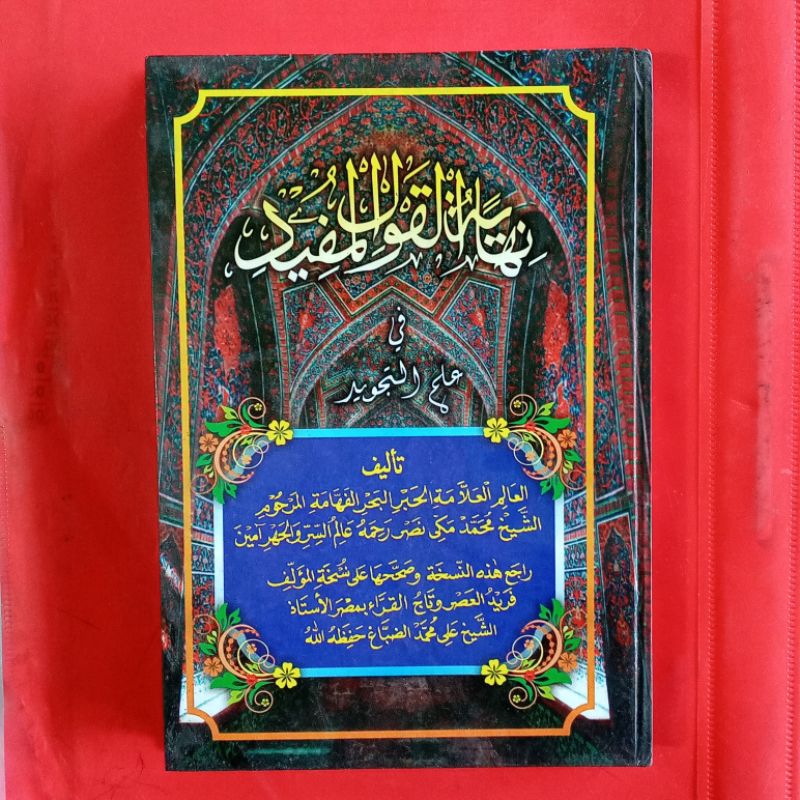 نِهَايَةُ القَوْلِ المُفِيْدِ
في
علم التجويد
تأليف
العَالِم العَلَّامَة الحَبْر البَحْر الفَهَّامَة المَرْحُوم
الشَّيخ مُحَمَّد مَكى نَصْر رَحِمَهُ عَالِمُ السِّرِّ وَالجَهْرِ آمِين
رَاجَعَ هٰذِهِ النّسخَة وصَحَّحَهَا عَلى نُسْخَةِ المؤلِّف
فَرِيْدُ العَصْرِ وَتَاجُ القُرَّاءِ بمصْرَ الأستَاذ
الشَّيخ عَلى مُحَمَّد الضبَّاع حَفِظَهُ اللهُ